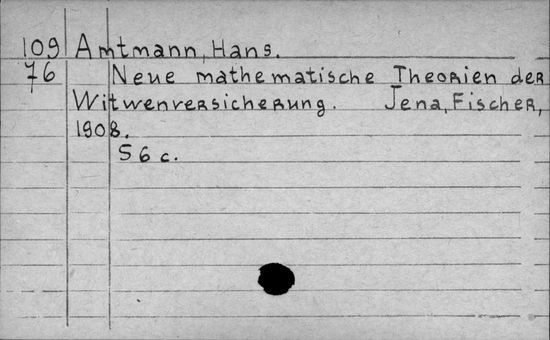 109 Amtmann, Hans.
76 Neue mathematische Theorien der
Witwenversicherung. Jena, Fischer,
1908.
56 c.